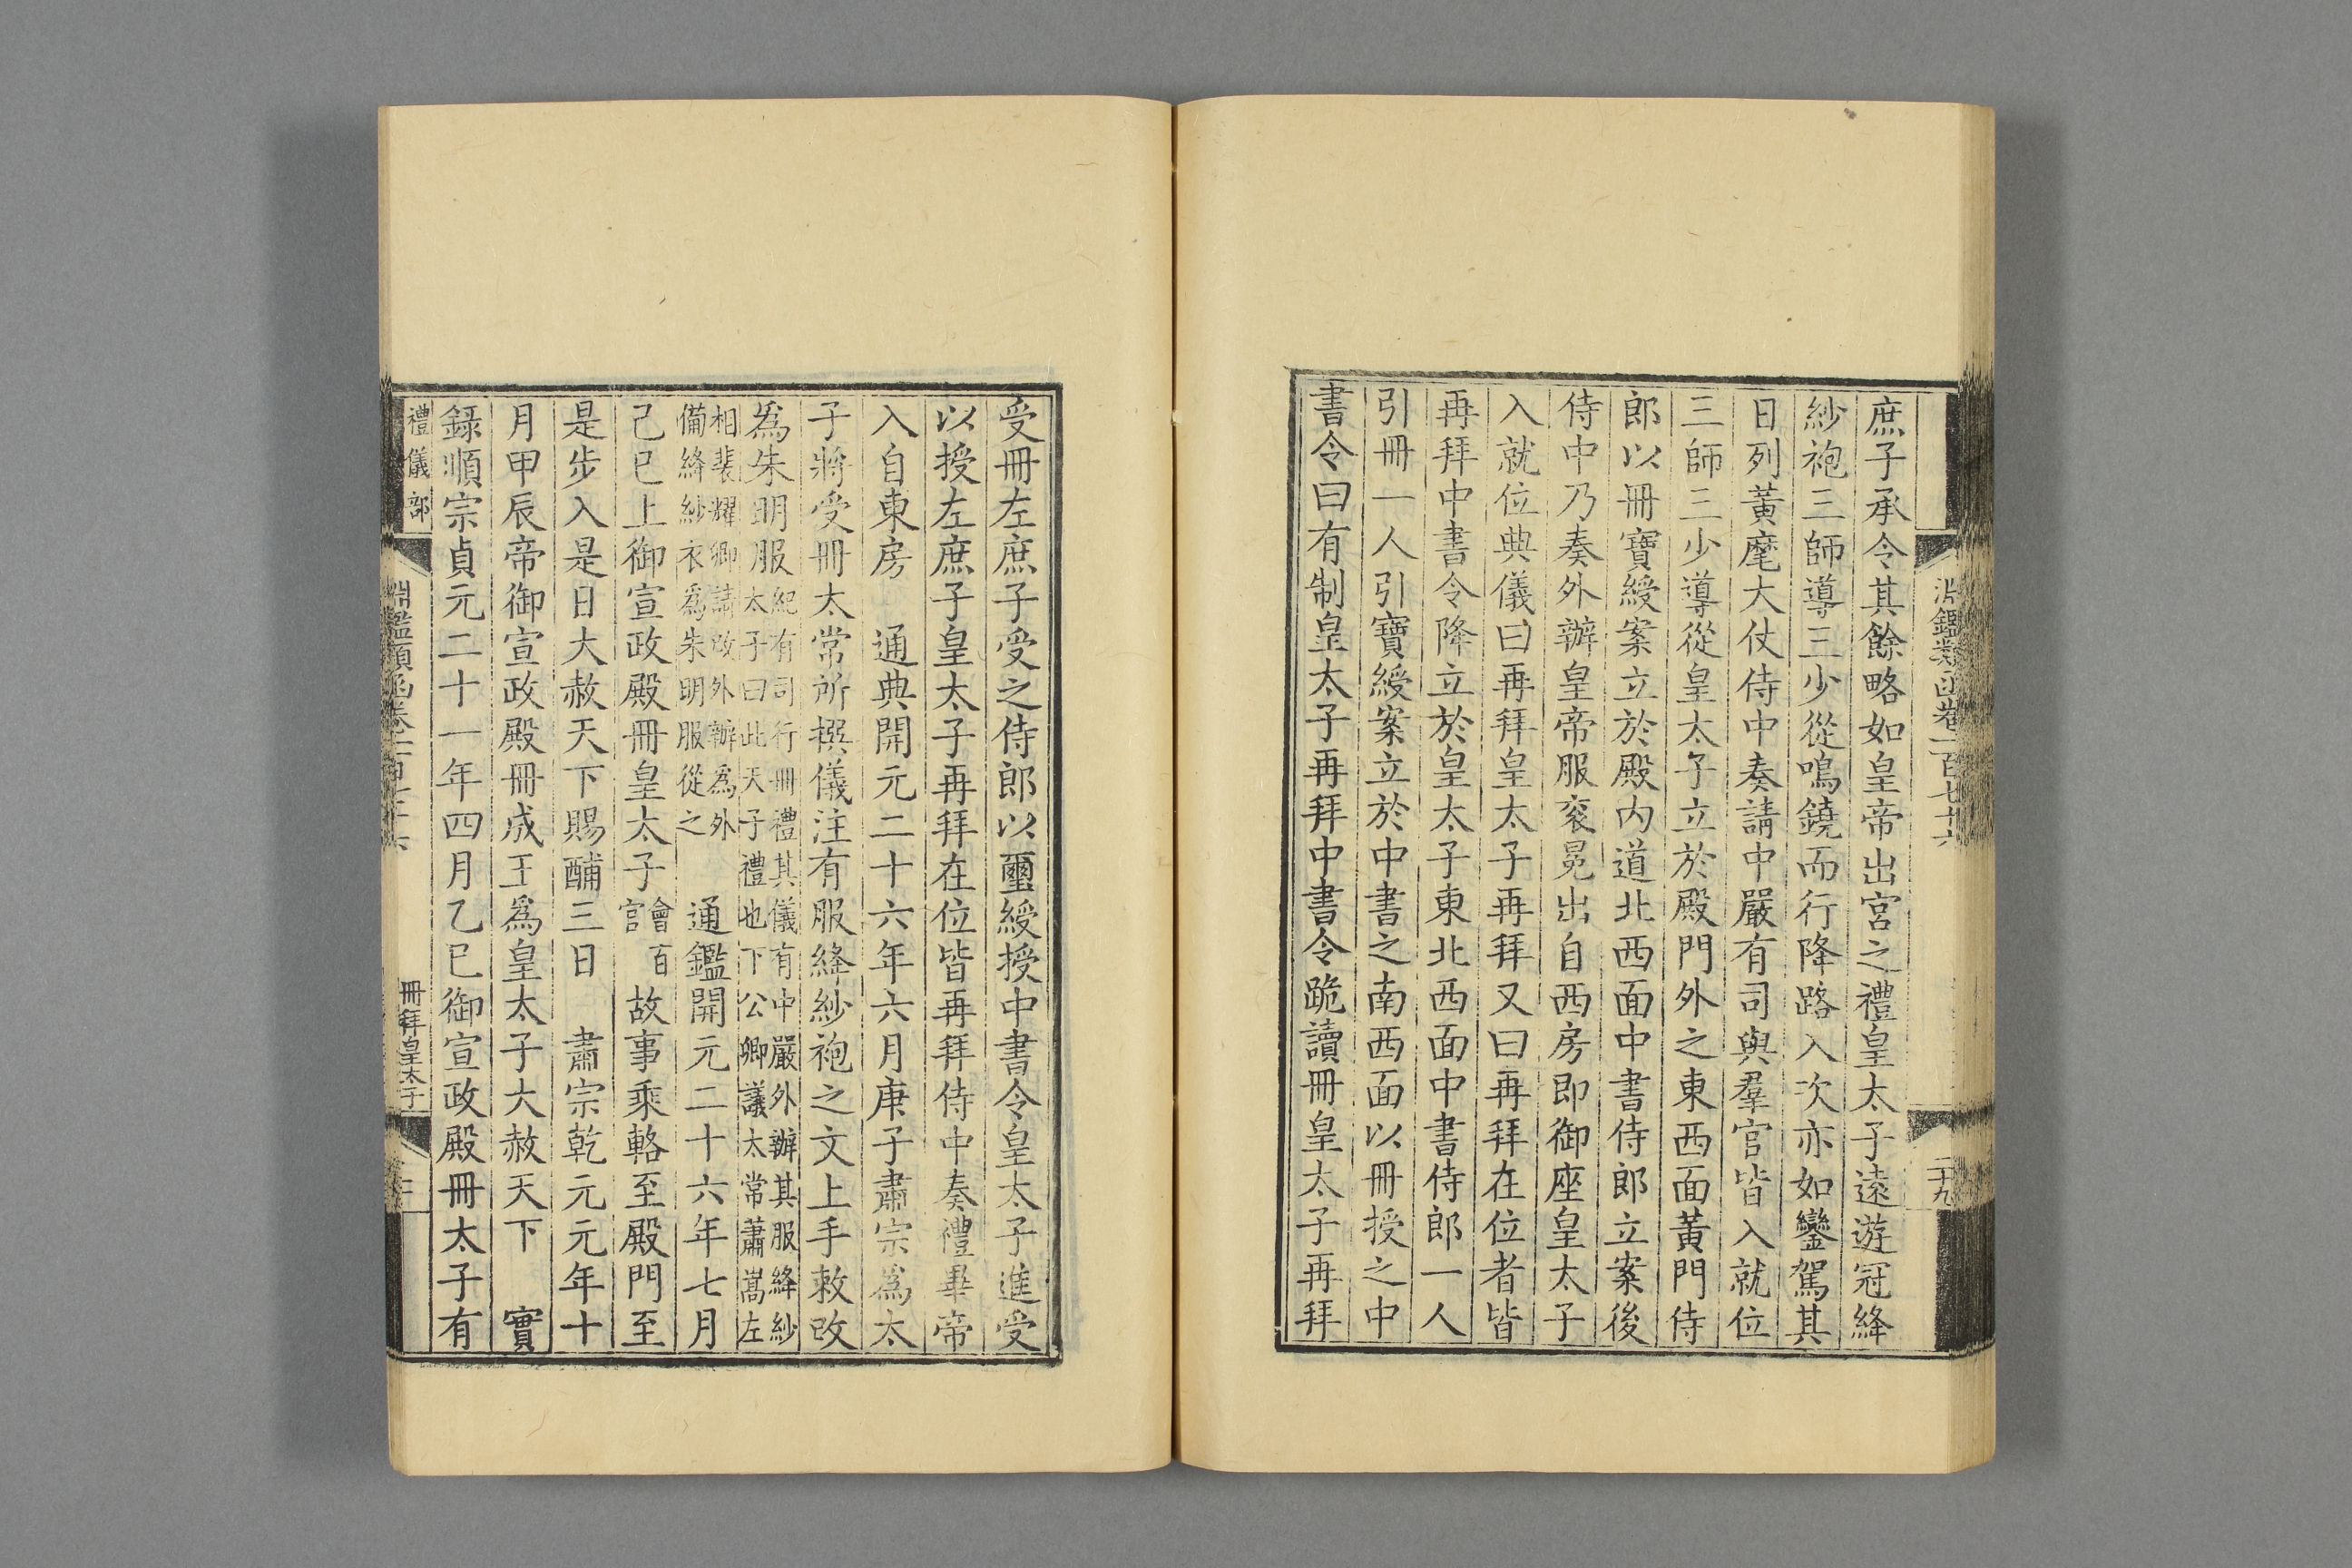 淵鑑類函卷一百七十六
二十九
庶子承令其餘略如皇帝出宮之禮皇太子遠遊冠絳
紗袍三師導三少從鳴鐃而行降路入次亦如鑾駕其
日列黃麾大仗侍中奏請中嚴有司與羣官皆入就位
三師三少導從皇太子立於殿門外之東西面黃門侍
郎以冊寶綬案立於殿內道北西面中書侍郎立案後
侍中乃奏外辦皇帝服袞冕出自西房即御座皇太子
入就位典儀曰再拜皇太子再拜又曰再拜在位者皆
再拜中書令降立於皇太子東北西面中書侍郎一人
引冊一人引寶綬案立於中書之南西面以冊授之中
書令曰有制皇太子再拜中書令跪讀冊皇太子再拜
受冊左庶子受之侍郎以璽綬授中書令皇太子進受
以授左庶子皇太子再拜在位皆再拜侍中奏禮畢帝
入自東房　通典開元二十六年六月庚子肅宗爲太
子將受冊太常所撰儀注有服絳紗袍之文上手敕改
爲朱明服紀有司行冊禮其儀有中嚴外辦其服絳紗
太子曰此天子禮也下公卿議太常蕭嵩左
相裴耀卿請改外辦爲外
備絳紗衣爲朱明服從之　通鑑開元二十六年七月
己巳上御宣政殿冊皇太子會百
官　故事乘輅至殿門至
是步入是日大赦天下賜酺三日　肅宗乾元元年十
月甲辰帝御宣政殿冊成王爲皇太子大赦天下　實
録順宗貞元二十一年四月乙巳御宣政殿冊太子有
禮儀部
淵鑑類函卷一百七十六
冊拜皇太子